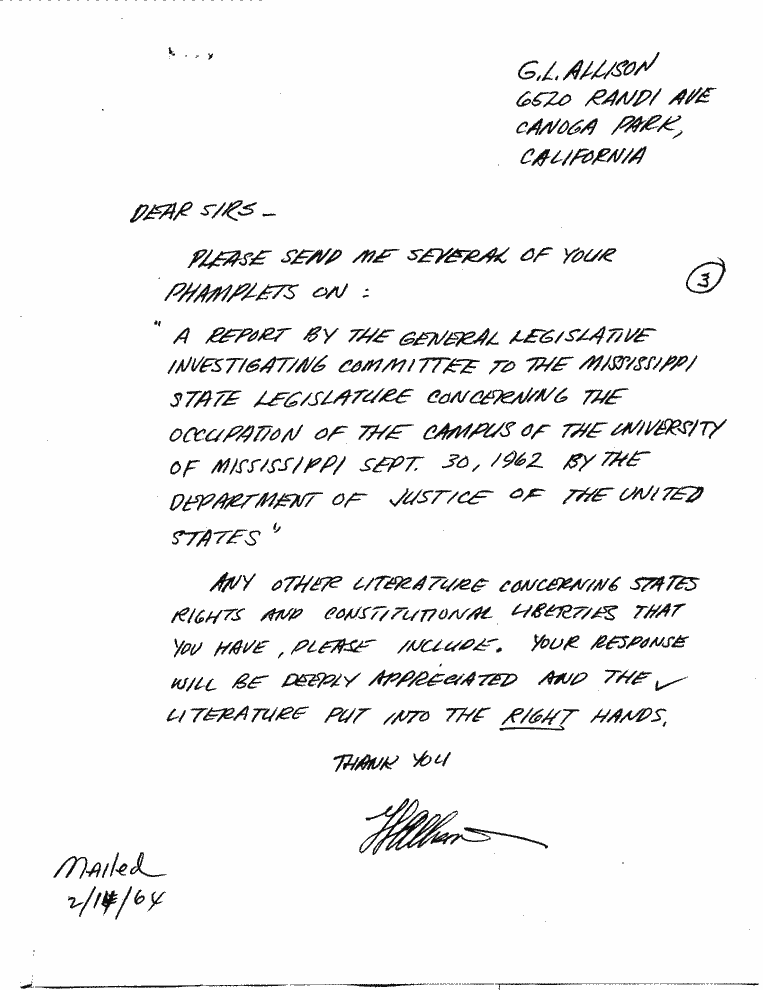 G.L. ALLISON
6520 RANDI AVE
CANOGA PARK,
CALIFORNIA
DEAR SIRS -
PLEASE SEND ME SEVERAL OF YOUR
PHAMPLETS ON :
3
" A REPORT BY THE GENERAL LEGISLATIVE
INVESTIGATING COMMITTEE TO THE MISSISSIPPI
STATE LEGISLATURE CONCERNING THE
OCCUPATION OF THE CAMPUS OF THE UNIVERSITY
OF MISSISSIPPI SEPT. 30, 1962 BY THE
DEPARTMENT OF JUSTICE OF THE UNITED
STATES "
ANY OTHER LITERATURE CONCERNING STATES
RIGHTS AND CONSTITUTIONAL LIBERTIES THAT
YOU HAVE, PLEASE INCLUDE. YOUR RESPONSE
WILL BE DEEPLY APPRECIATED AND THE
LITERATURE PUT INTO THE RIGHT HANDS.
THANK YOU
GLAllison
Mailed
2/14/64